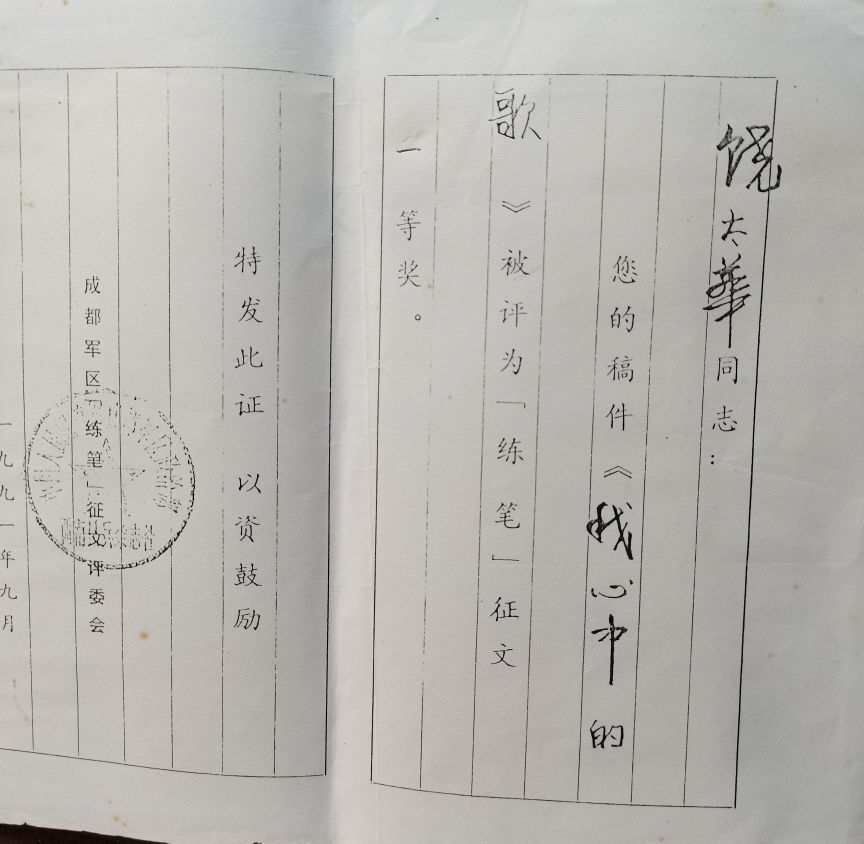 饶太華同志：
您的稿件《我心中的
歌》被评为「练笔」征文
一等奖。
特发此证 以资鼓励
成都军区「练笔」征文评委会
一九九一年九月